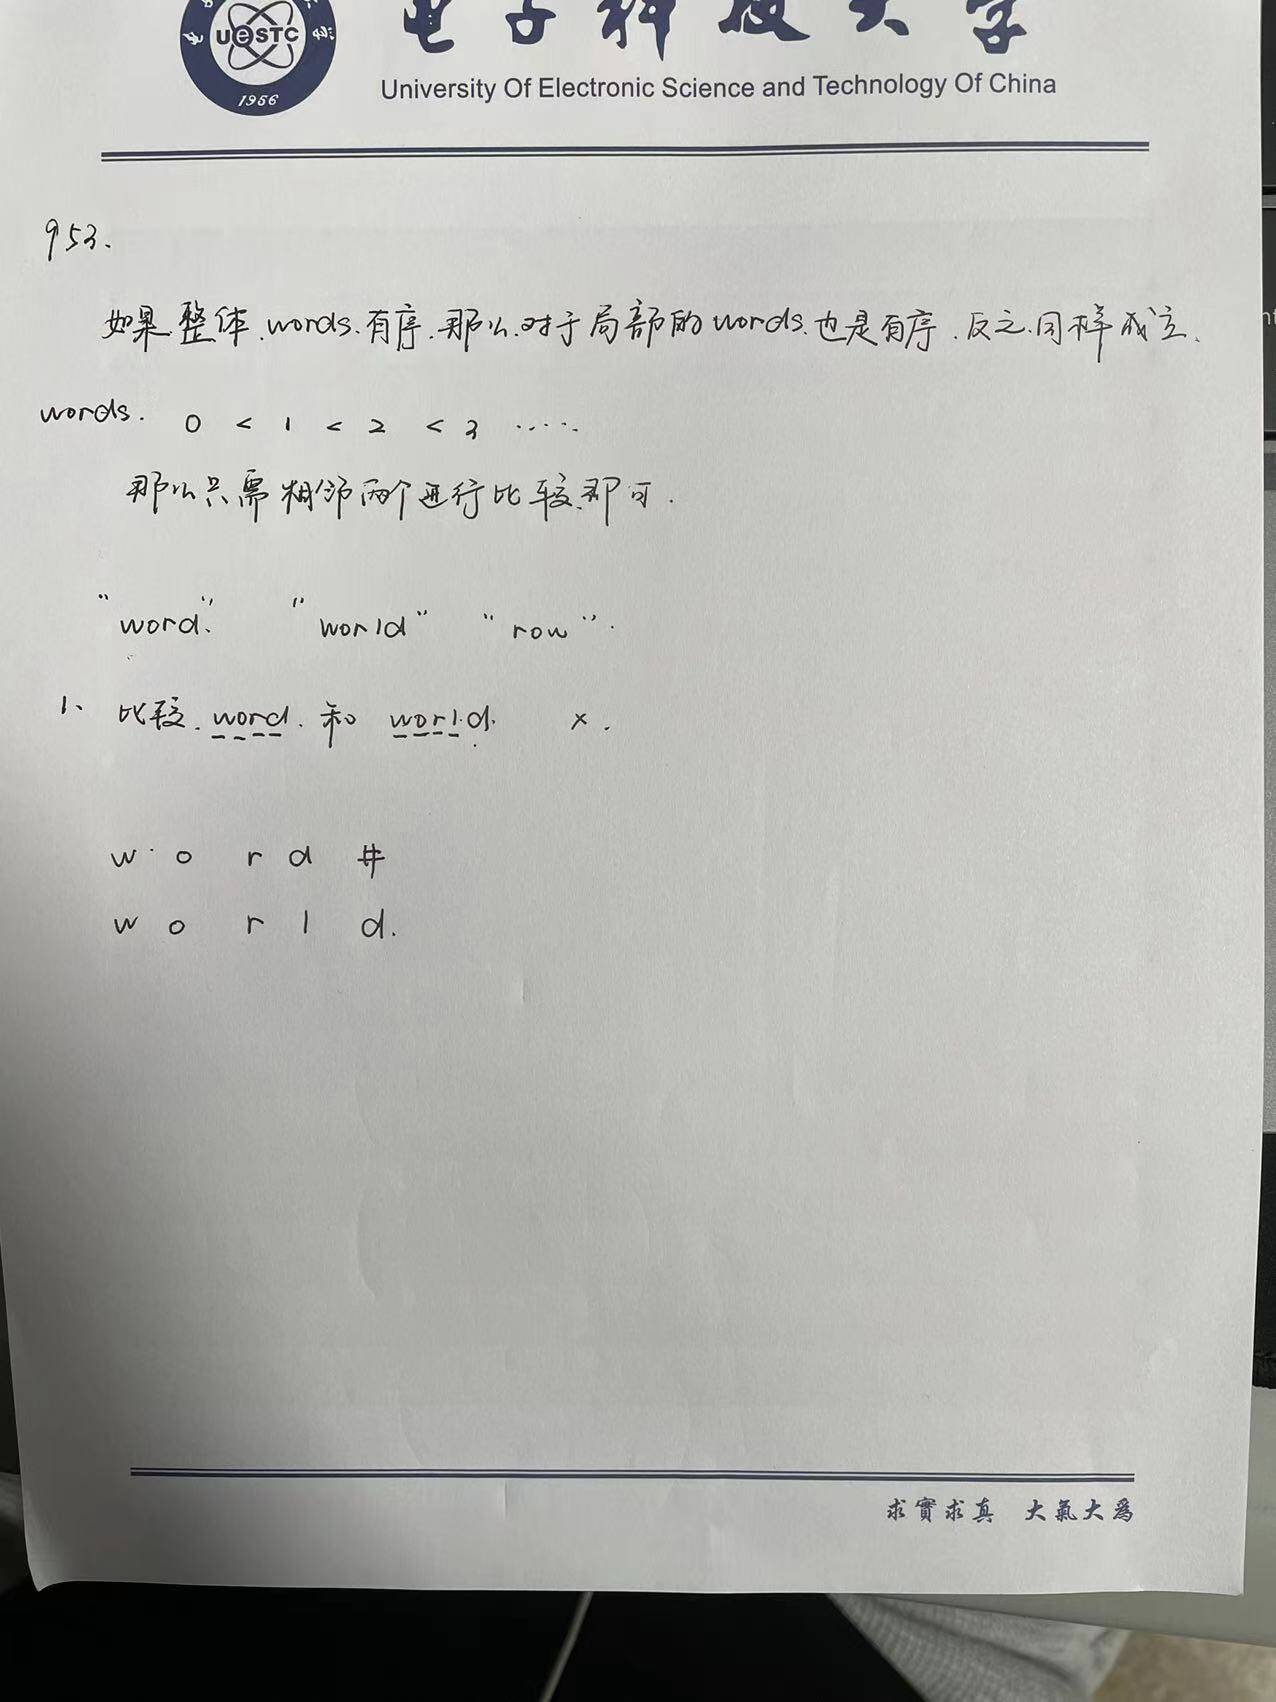 UeSTC
1956
电子科技大学
University Of Electronic Science and Technology Of China
953.
如果整体.words.有序.那么.对于局部的words.也是有序.反之.同样成立.
words. 0 < 1 < 2 < 3 .....
那么只需相邻两个进行比较即可.
"word". "world" "row".
1、比较.word.和 world. ×.
w o r d #
w o r l d.
求實求真 大氣大為